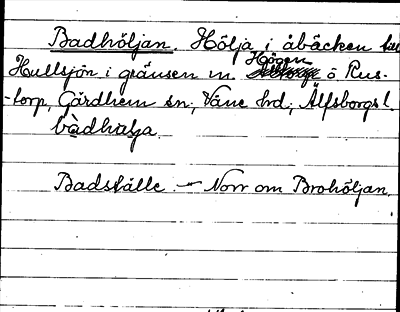 Badhöljan. Hölja i åbäcken till
Hullsjön i gränsen m Högen
ö Rus-
-torp, Gärdhem sn; Väne hd; Älfsborgs l.
bàdhalja
Badställe. – Norr om Broholjan.